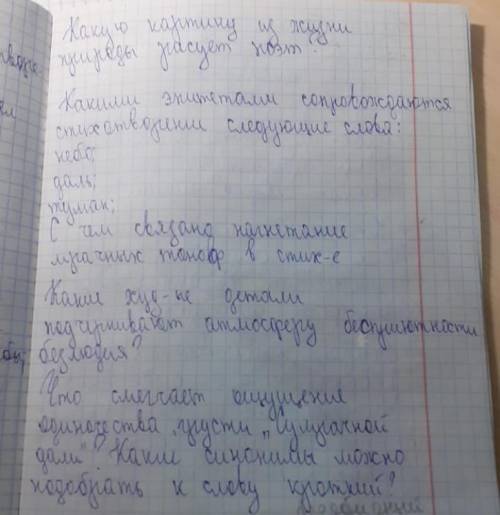 Какую картину из жизни
природы рисует поэт?
Какими эпитетами сопровождаются
стихотворении следующие слова:
небо;
даль;
туман;
С чем связано нагнетание
мрачных тонов в стих-е
Какие худ-ые детали
подчеркивают атмосферу бесприютности
безлюдия?
Что смягчает ощущение
одиночества, грусти, "сумрачной
дали"? Какие синонимы можно
подобрать к слову кроткий?